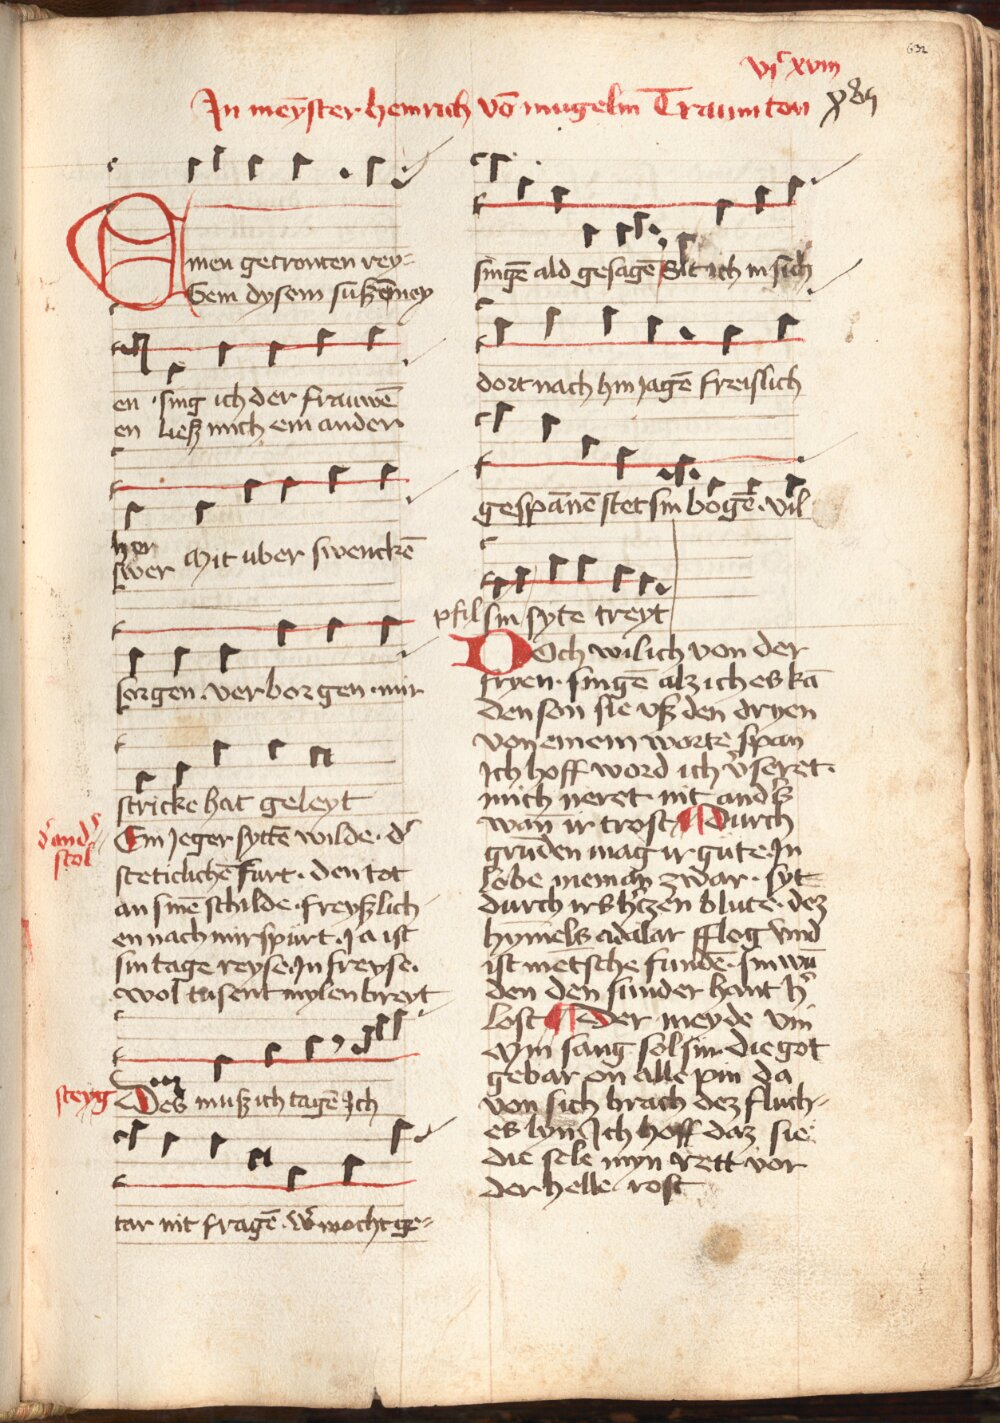 632
vjc xviij
In meyster heinrich vō mugelin Traumton
Einen getrouten rey-
Gein dysem suszē mey
en sing ich der frauwē
en liesz mich ein ander
her
swer Mit uber swenckē
sorgen · verborgen · mir
stricke hat geleyt
d' and's
stol
Ein Jeger syttē wilde · d'
steticlichē furt · den tot
an sinē schilde · freyszlich
en nach mir spurt · Ja ist
sin tage reyse · In freyse ·
wol tusent mylen breyt
steyg
Des musz ich tagē Ich
tar nit fragē · w' mocht ge-
singē ald gesagē Sit ich in sich
dort nach hin jagē freislich
gespānē stet sin bogē · vil
pfil sin syte treyt
Doch wil ich von der
fryen · singē alz ich es kā
den son sie vsz den dryen
von einem worte span
Ich hoff word ich v'seret ·
mich neret · nit and's
wan ir trost Durch
gruden mag ir gute In
lobe nieman zwar · syt
durch irs h'tzen blute · dez
hymels adalar fflog vnd
ist mētsche fundē · sin wū
den den sunder hant h'
lost Der meyde vin
myn sang sol sin · die got
gebar on alle pin da
von sich brach dez fluch-
es lyn Ich hoff daz sie
die sele myn rett vor
der helle · rost